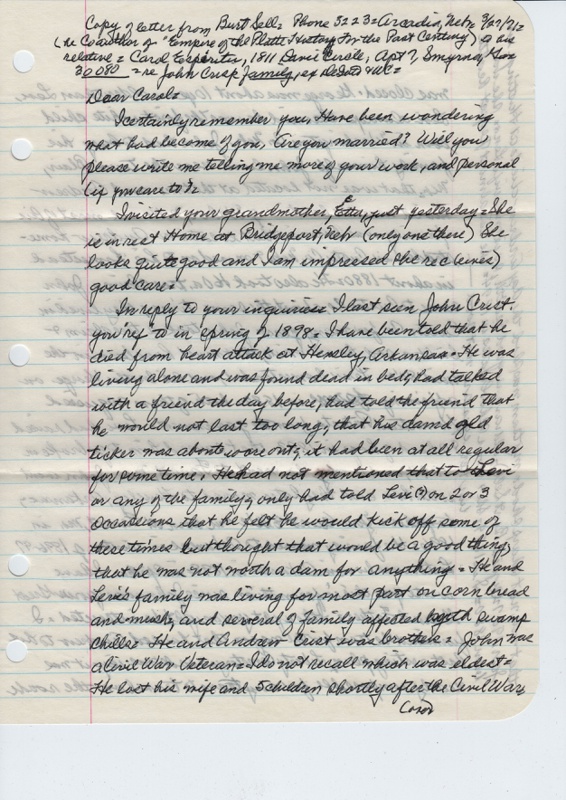 Copy of letter from Burt Sell = Phone 3223 = Arcadia, Nebr 3/27/71 =
(he Coauthor of "Empire of the Platte History For the Past Century) to his
relative = Carol 1811 Circle, Apt 7, Smyrna,
30080 = re John Crist family, ex
Dear Carol =
I certainly remember you, Have been wondering
what had become of you, Are you married? Will you
please write me telling me more of your work, and personal
(if you care to)?
I visited your grandmother, Etta, just yesterday = She
is in rest Home at Bridgeport, Nebr (only one there) She
looks quite good and I am impressed she rec (eives)
good care =
In reply to your inquiries I last seen John Crist.
you ref to in spring of 1898 = I have been told that he
died from heart attack at Hensley, Arkansas = He was
living alone and was found dead in bed, had talked
with a friend the day before, had told the friend that
he would not last too long, that his damn'd old
ticker was about wore out, it had been at all regular
for some time, He had not mentioned that to Levi
or any of the family, only had told Levi (?) on 2 or 3
occassions that he felt he would kick off some of
these times but thought that would be a good thing,
that he was not worth a dam for anything = He and
Levi's family was living for most part on corn bread
and mush, and several of family affected with swamp
chills = He and Andrew Crist was brothers = John was
a Civil War Veteran = I do not recall which was eldest =
He lost his wife and 5 children shortly after the Civil War,